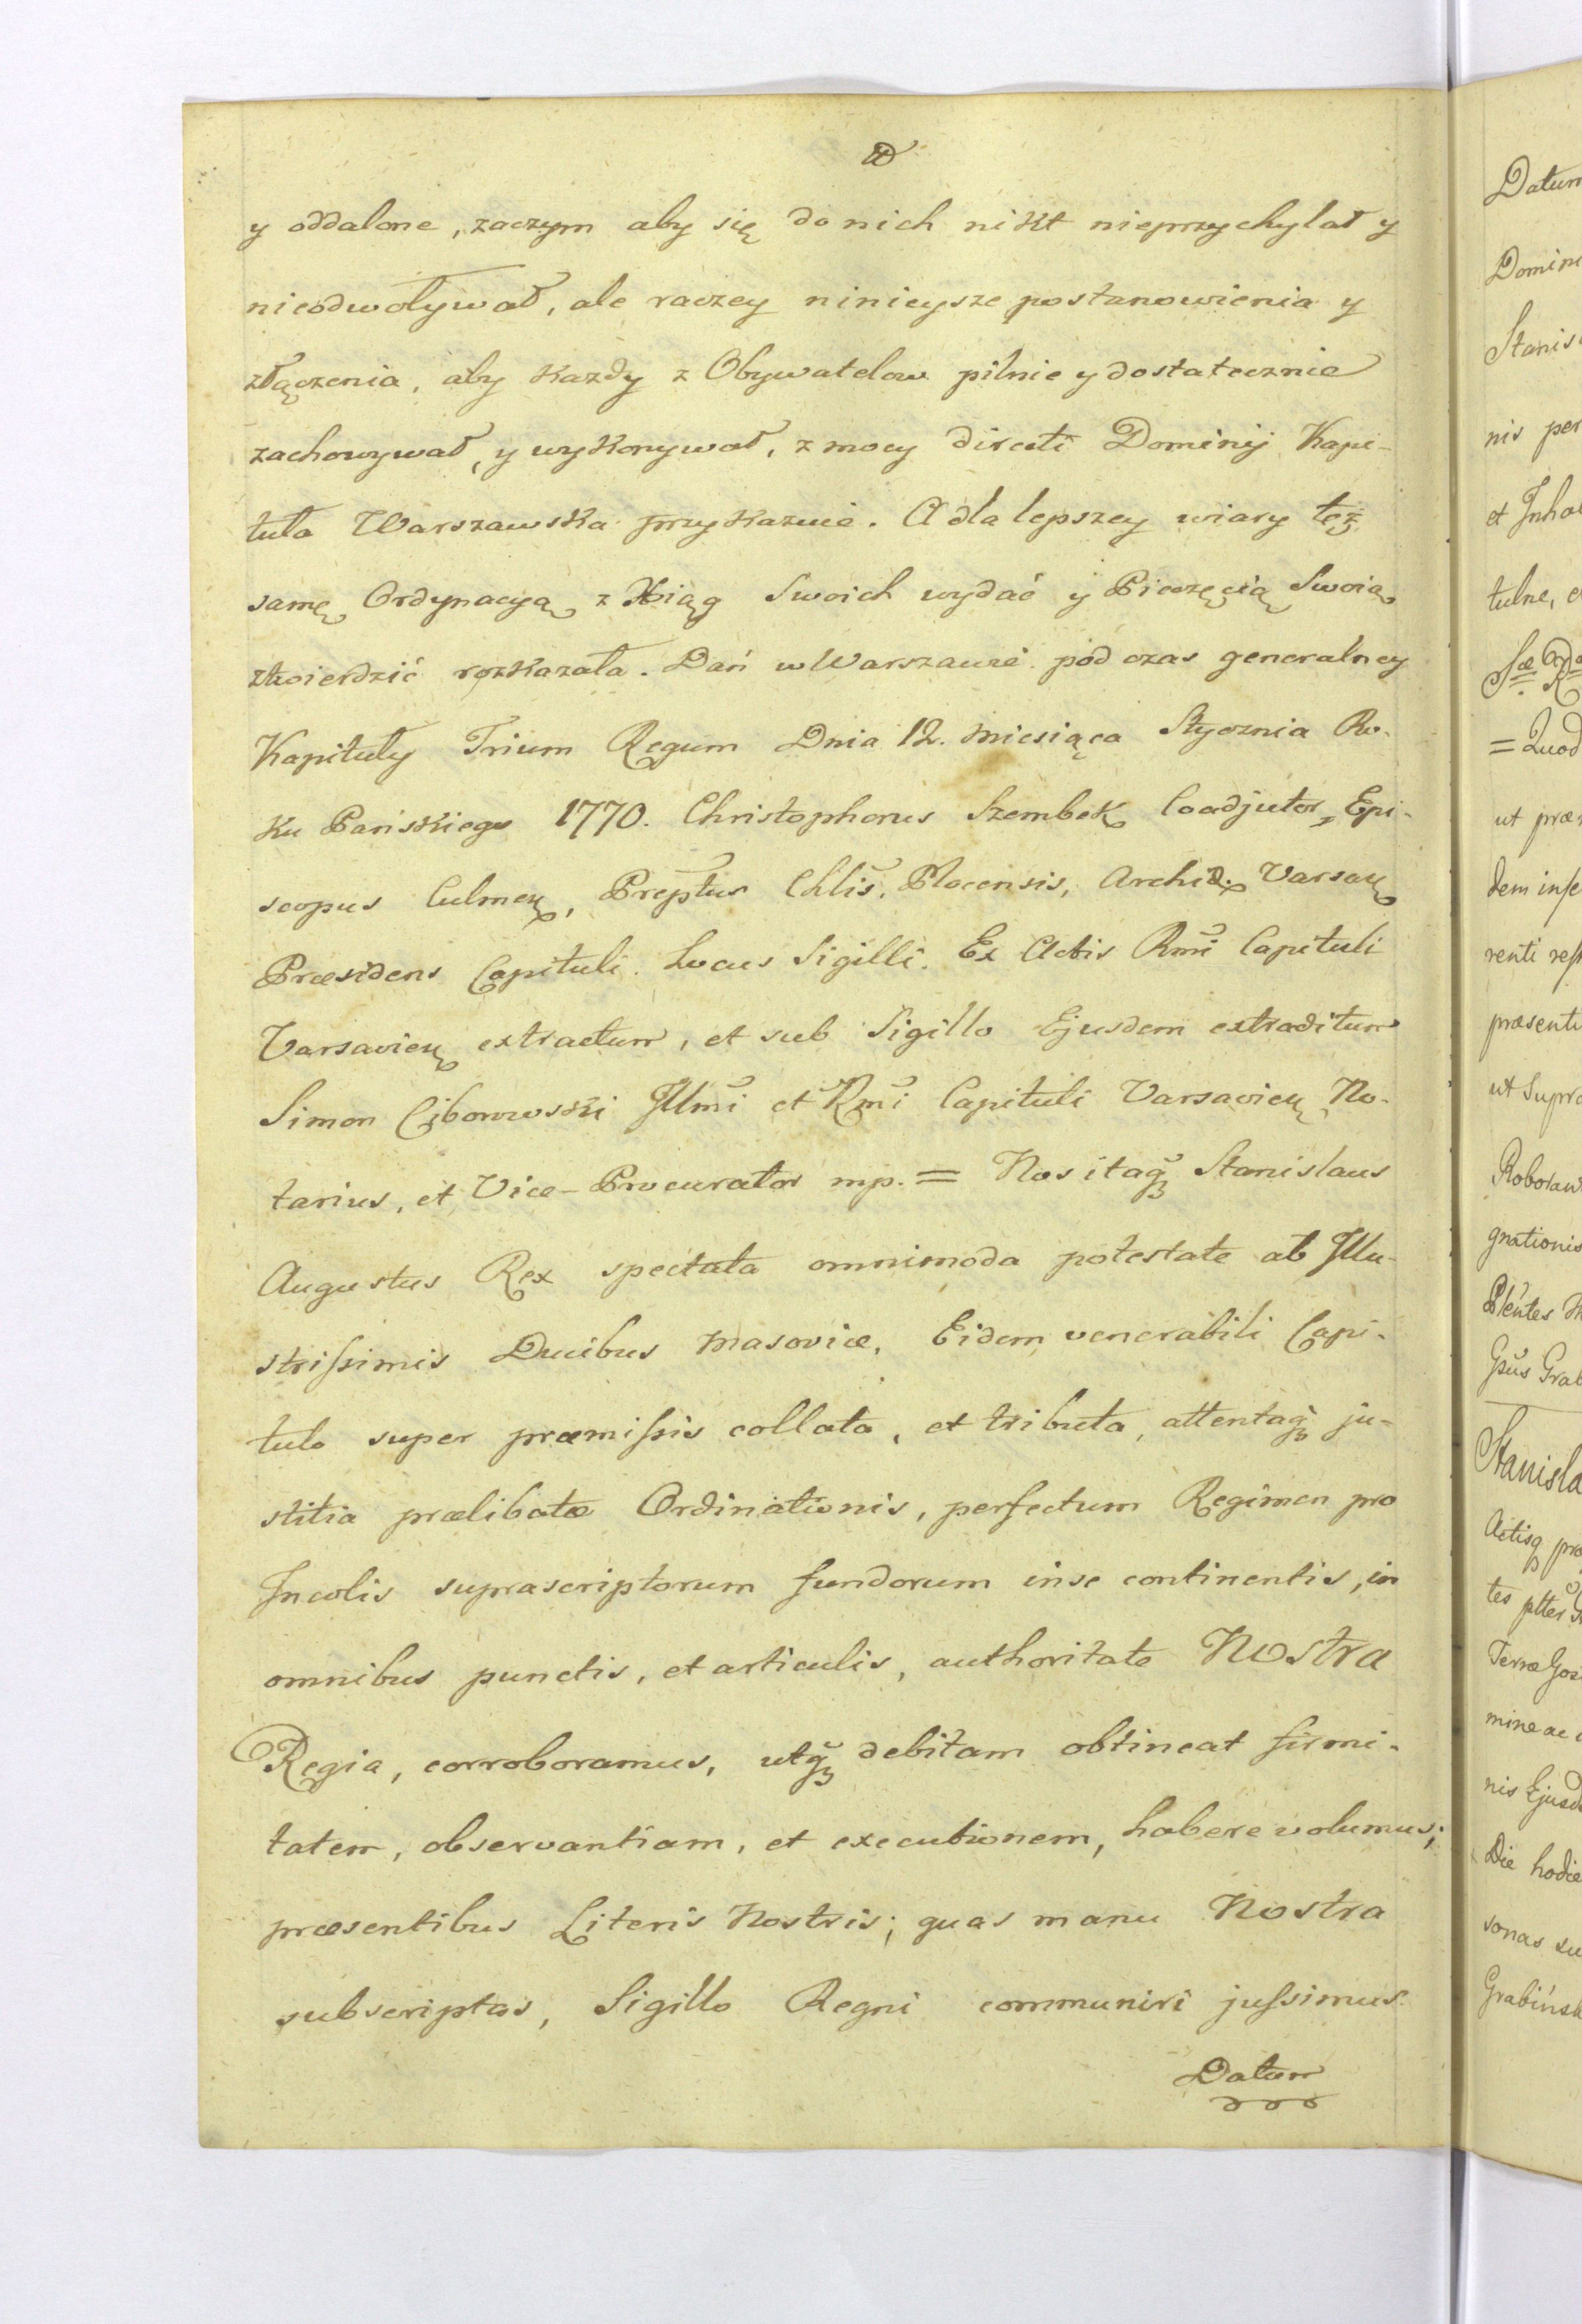 y oddalone, zaczym aby się do nich nikt nieprzychylał y
nieodwoływał, ale raczey ninieysze postanowienia y
złączenia, aby kazdy z Obywatelow pilnie y dostatecznie
zachowywał, y wykonywał, z mocy directi Dominij Kapi-
tuła Warszawska przykazuie. A dla lepszey wiary tęż
samę Ordynacyą z Xiąg Swoich wydać y Pieczęcią Swoią
ztwierdzić rozkazała. Dań w Warszawie pod czas generalney
Kapituły Trium Regum Dnia 12. Miesiąca Stycznia Ro-
ku Pańskiego 1770. Christophorus Szembek Coadjutor, Epi-
scopus Culmen, Preptus Chlis, Plocensis, Archid. Varsav
Præsidens Capituli. Locus Sigilli. Ex Actis Rmi Capituli
Varsavien extractum, et sub Sigillo Ejusdem extraditum
Simon Ciborowski Illmi et Rmi Capituli Varsavien No-
tarius, et Vice-Procurator mp. = Nos itaq Stanislaus
Augustus Rex spectata omnimoda potestate ab Illu-
strissimis Ducibus Masoviæ, Eidem venerabili Capi-
tulo super præmissis collata, et tributa, attentaq ju-
stitia prælibatæ Ordinationis, perfectum Regimen pro
Incolis suprascriptorum fundorum in se continentis, in
omnibus punctis, et articulis, authoritate Nostra
Regia, corroboramus, utq debitam obtineat firmi-
tatem, observantiam, et executionem, habere volumus;
præsentibus Literis Nostris; quas manu Nostra
subscriptas, Sigillo Regni communiri jussimus.
Datum
Datum
Domin
Stanis
nis per
et Inha
tulne,
= Quod
ut præ
dem inse
renti
præsenti
ut Supra
Roboran
gnationis
Gsus Grab
Stanisla
Actisq
Terræ Gos
mine ac
nis Ejusd
Die hodie
sonas su
Grabińsk